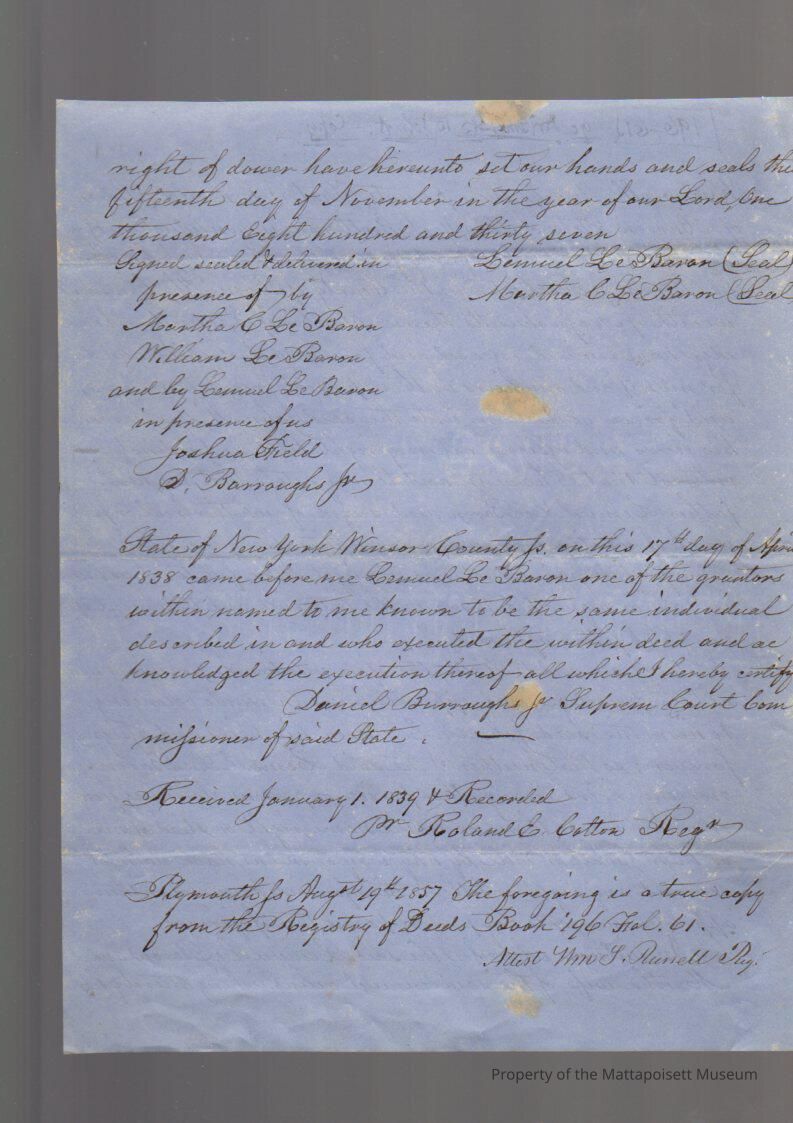 right of dower have hereunto set our hands and seals the
fifteenth day of November in the year of our Lord, One
thousand Eight hundred and thirty seven
Signed sealed & delivered in Lemuel Le Baron (Seal)
presence of by Martha C Le Baron (Seal
Martha C Le Baron
William Le Baron
and by Lemuel Le Baron
in presence of us
Joshua Field
D. Barroughs Jr
State of New York Winsor County ss. on this 17th day of Apri
1838 came before me Lemuel Le Baron one of the grantors
within named to me known to be the same individual
described in and who executed the within deed and ac
knowledged the execution thereof all which I hereby certify
Daniel Burroughs Jr Suprem Court Com
missioner of said State.
Received January 1. 1839 & Recorded
pr Roland E. Cotton Regr
Plymouth ss Augst 19th 1857 The foregoing is a true copy
from the Registry of Deeds Book 196 Fol. 61.
Attest Wm S. Russell Reg.
Property of the Mattapoisett Museum